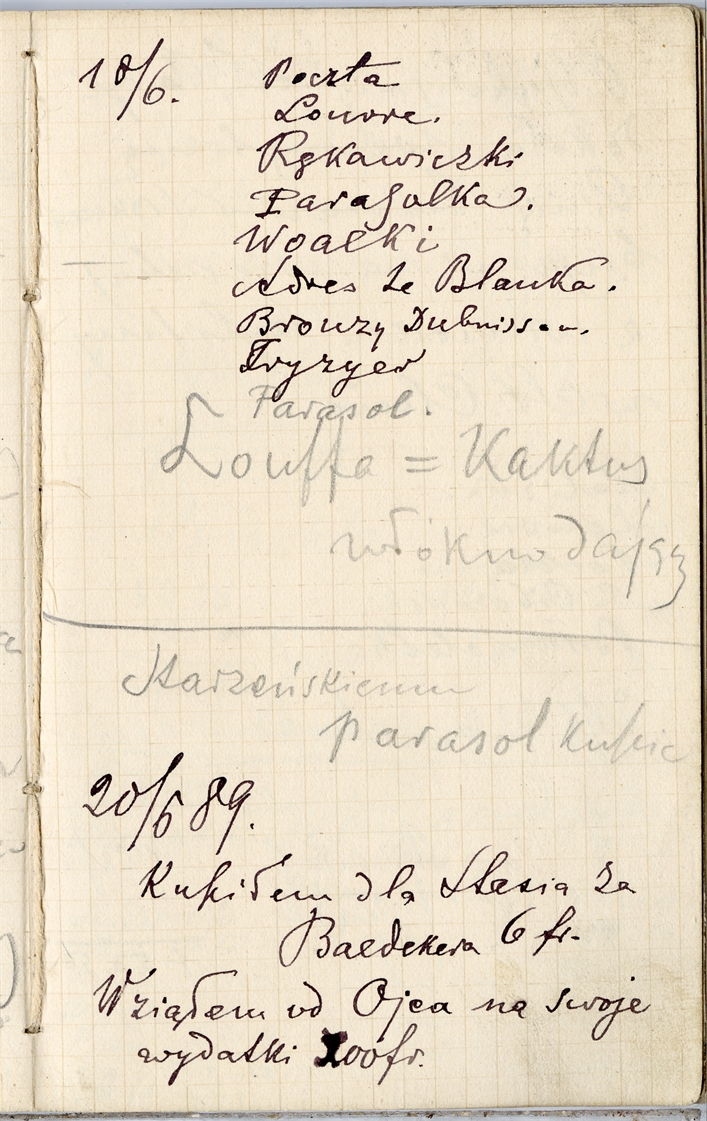 18/6.
Poczta
Louvre.
Rękawiczki
Parasolka.
Woalki
Adres Le Blanka.
Bronzy Dubuisson.
Fryzyer
Parasol.
Louffa = Kaktus
włókno dając
Starzeńskiemu
parasol kupić
20/6 89.
Kupiłem dla Stasia za
Baedekera 6 fr.
Wziąłem od Ojca na swoje
wydatki 100 fr.